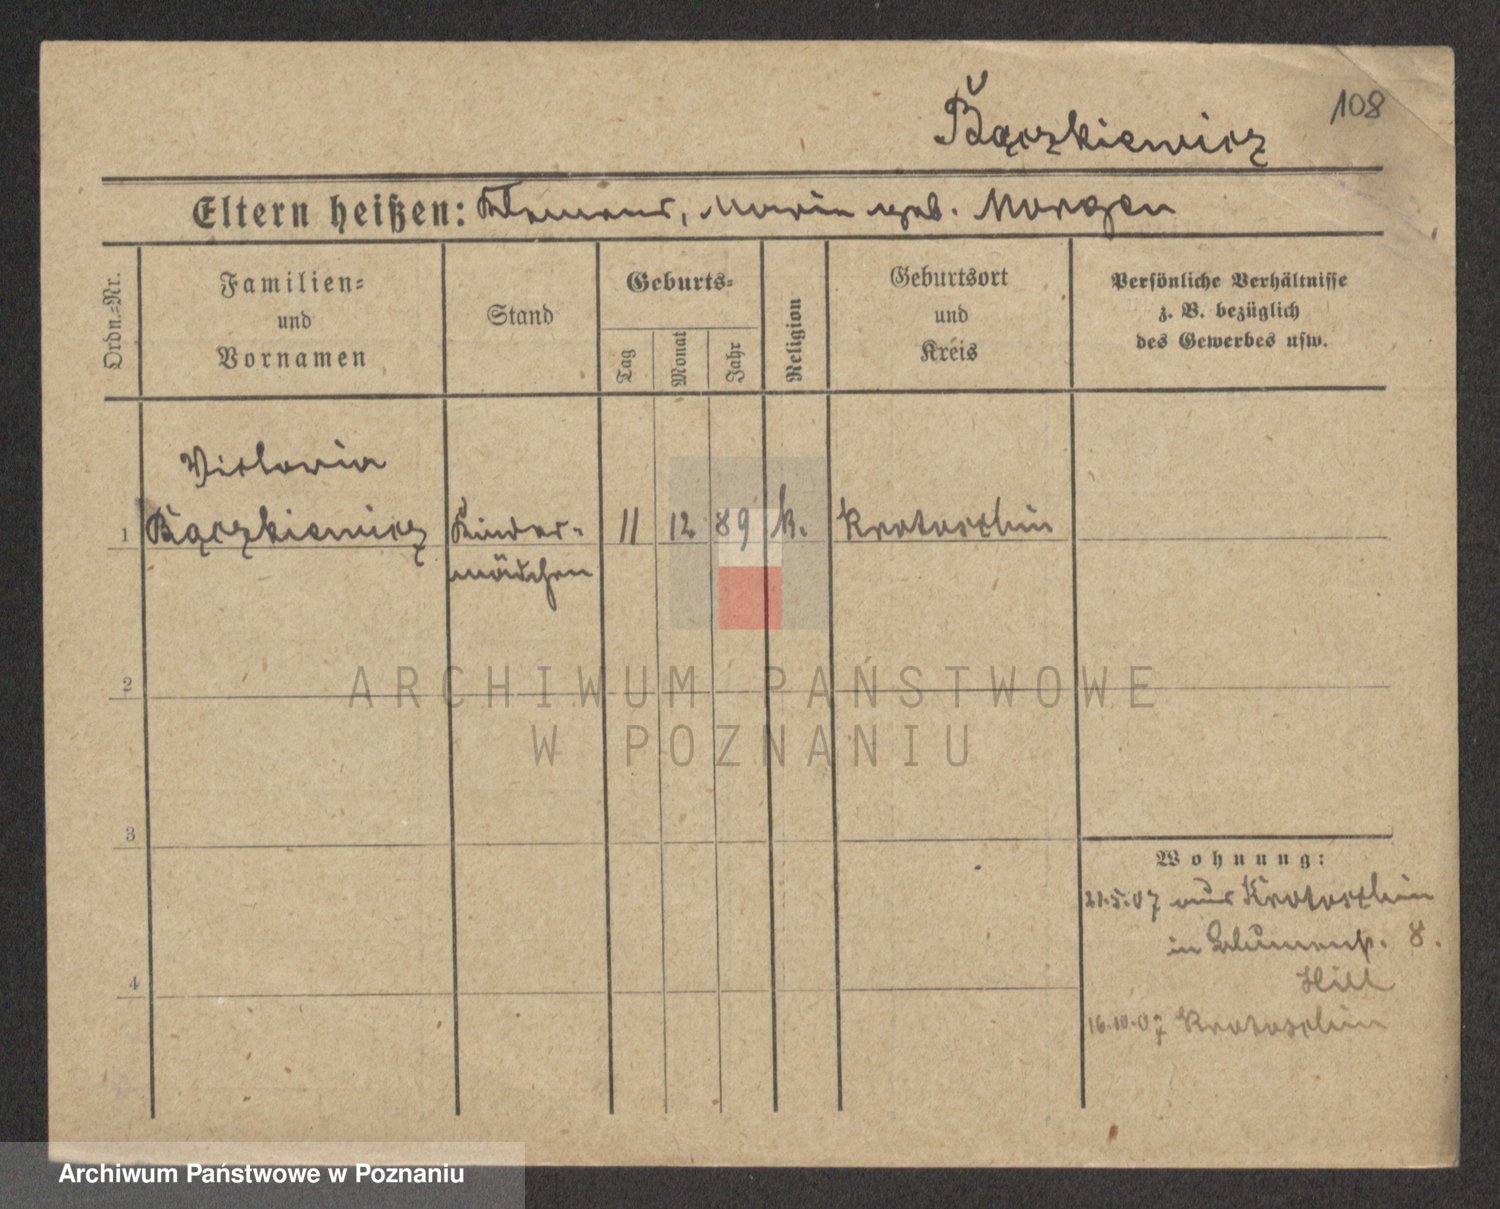 108
Bączkiewicz
Eltern heißen: Klemens, Marie geb. Morgen
Ordn.=Nr.
Familien=
und
Vornamen
Stand
Geburts=
Tag
Monat
Jahr
Religion
Geburtsort
und
Kreis
Persönliche Verhältnisse
z. B. bezüglich
des Gewerbes usw.
Victoria
1 Bączkiewicz Kinder= 11 12 89 k. Krotoschin
mädchen
2
3
4
Wohnung:
21.5.07 aus Krotoschin
in Blumenst. 8.
Hill
16.10.07 Krotoschin
ARCHIWUM PAŃSTWOWE
W POZNANIU
Archiwum Państwowe w Poznaniu